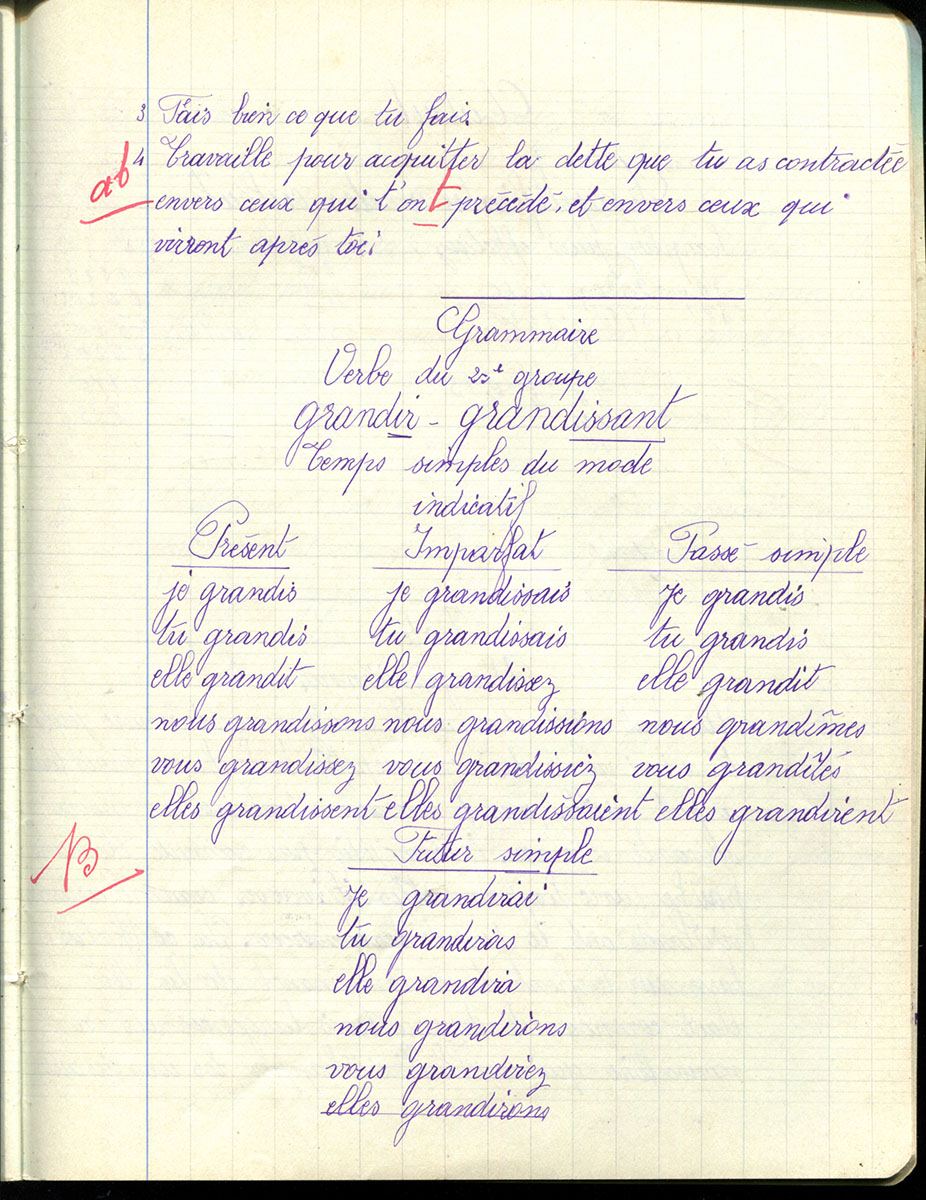 3 Fais bien ce que tu fais.
4 Travaille pour acquitter la dette que tu as contractée
ab
envers ceux qui t'ont précédé, et envers ceux qui
vivront après toi.
Grammaire
Verbe du 2me groupe
grandir - grandissant
Temps simples du mode
indicatif
Présent Imparfat Passé simple
je grandis je grandissais je grandis
tu grandis tu grandissais tu grandis
elle grandit elle grandissez elle grandit
nous grandissons nous grandissions nous grandîmes
vous grandissez vous grandissiez vous grandîtes
elles grandissent elles grandissaient elles grandirent
B
Futur simple
je grandirai
tu grandiras
elle grandira
nous grandirons
vous grandirez
elles grandirons